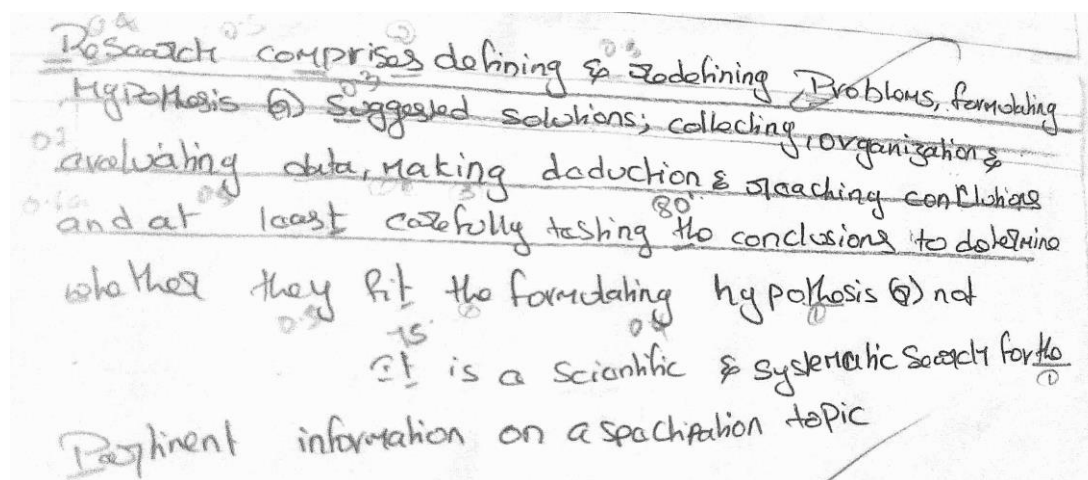 Research comprises defining & redefining Problems, formulating
Hypothesis (or) Suggested solutions; collecting, organization &
evaluating data, Making deduction & reaching conclusions
and at least carefully testing the conclusions to determine
whether they fit the formulating hypothesis (or) not
It is a Scientific & Systematic Search for the
Pertinent information on a topic